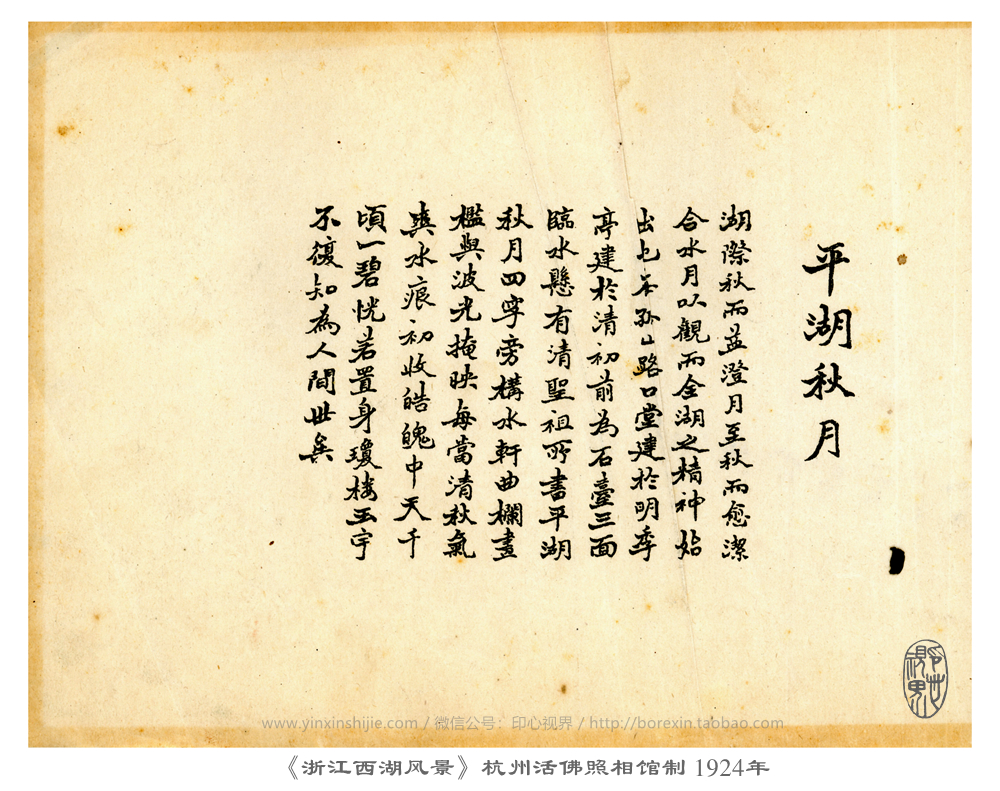 平湖秋月
湖際秋而益澄月至秋而愈潔
合水月以觀而全湖之精神始
出也孤山路口堂建於明季
亭建於清初前為石臺三面
臨水懸有清聖祖所書平湖
秋月四字旁構水軒曲欄畫
檻與波光掩映每當清秋氣
爽水痕初收皓魄中天千
頃一碧恍若置身瓊樓玉宇
不復知為人間世矣
www.yinxinshijie.com / 微信公号：印心视界 / http://borexin.taobao.com
《浙江西湖风景》杭州活佛照相馆制 1924年